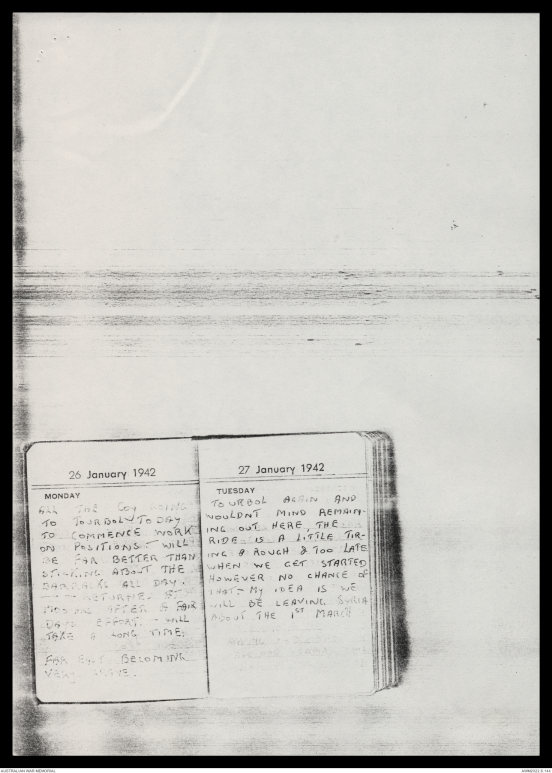 26 January 1942
MONDAY
ALL THE COY GOING
TO TOURBOL TODAY
TO COMMENCE WORK
ON POSITIONS - WILL
BE FAR BETTER THAN
STICKING ABOUT THE
BARRACKS ALL DAY.
RETURNED 5
AFTER A FAIR
DAYS EFFORT - WILL
TAKE A LONG TIME.
FAR EAST BECOMING
VERY
27 January 1942
TUESDAY
TOURBOL AGAIN AND
WOULDNT MIND REMAIN-
ING OUT HERE, THE
RIDE IS A LITTLE TIR-
ING & ROUGH & TOO LATE
WHEN WE GET STARTED
HOWEVER NO CHANCE OF
THAT - MY IDEA IS WE
WILL BE LEAVING SYRIA
ABOUT THE 1ST MARCH
AUSTRALIAN WAR MEMORIAL